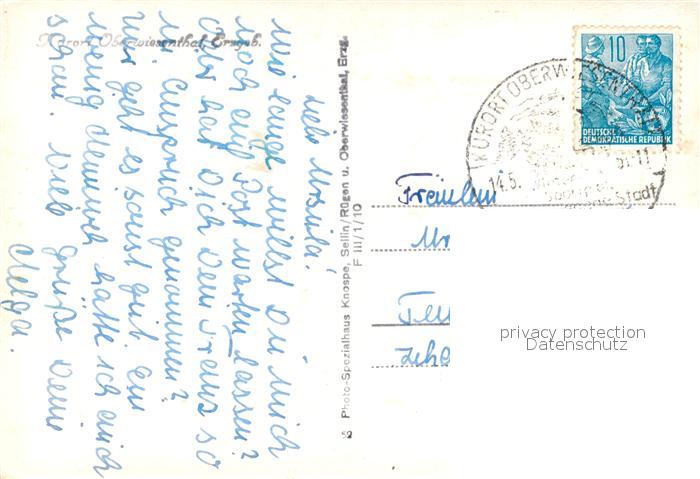 Kurort Oberwiesenthal, Erzgeb.
Liebe Ursula!
Wie lange willst Du mich
noch auf Post warten lassen?
Oder hat Dich Dein Franz so
in Anspruch genommen?
Mir geht es sonst gut, ein
wenig dennoch hätte ich euch
gern. Viele Grüße Deine
Helga.
Photo-Spezialhaus Knospe, Sellin/Rügen u. Oberwiesenthal, Erzg.
F III/1/10
10
DEUTSCHE
DEMOKRATISCHE REPUBLIK
KURORT OBERWIESENTHAL
14.5. 57-11
Stadt
Fräulein
Ur
privacy protection
Datenschutz